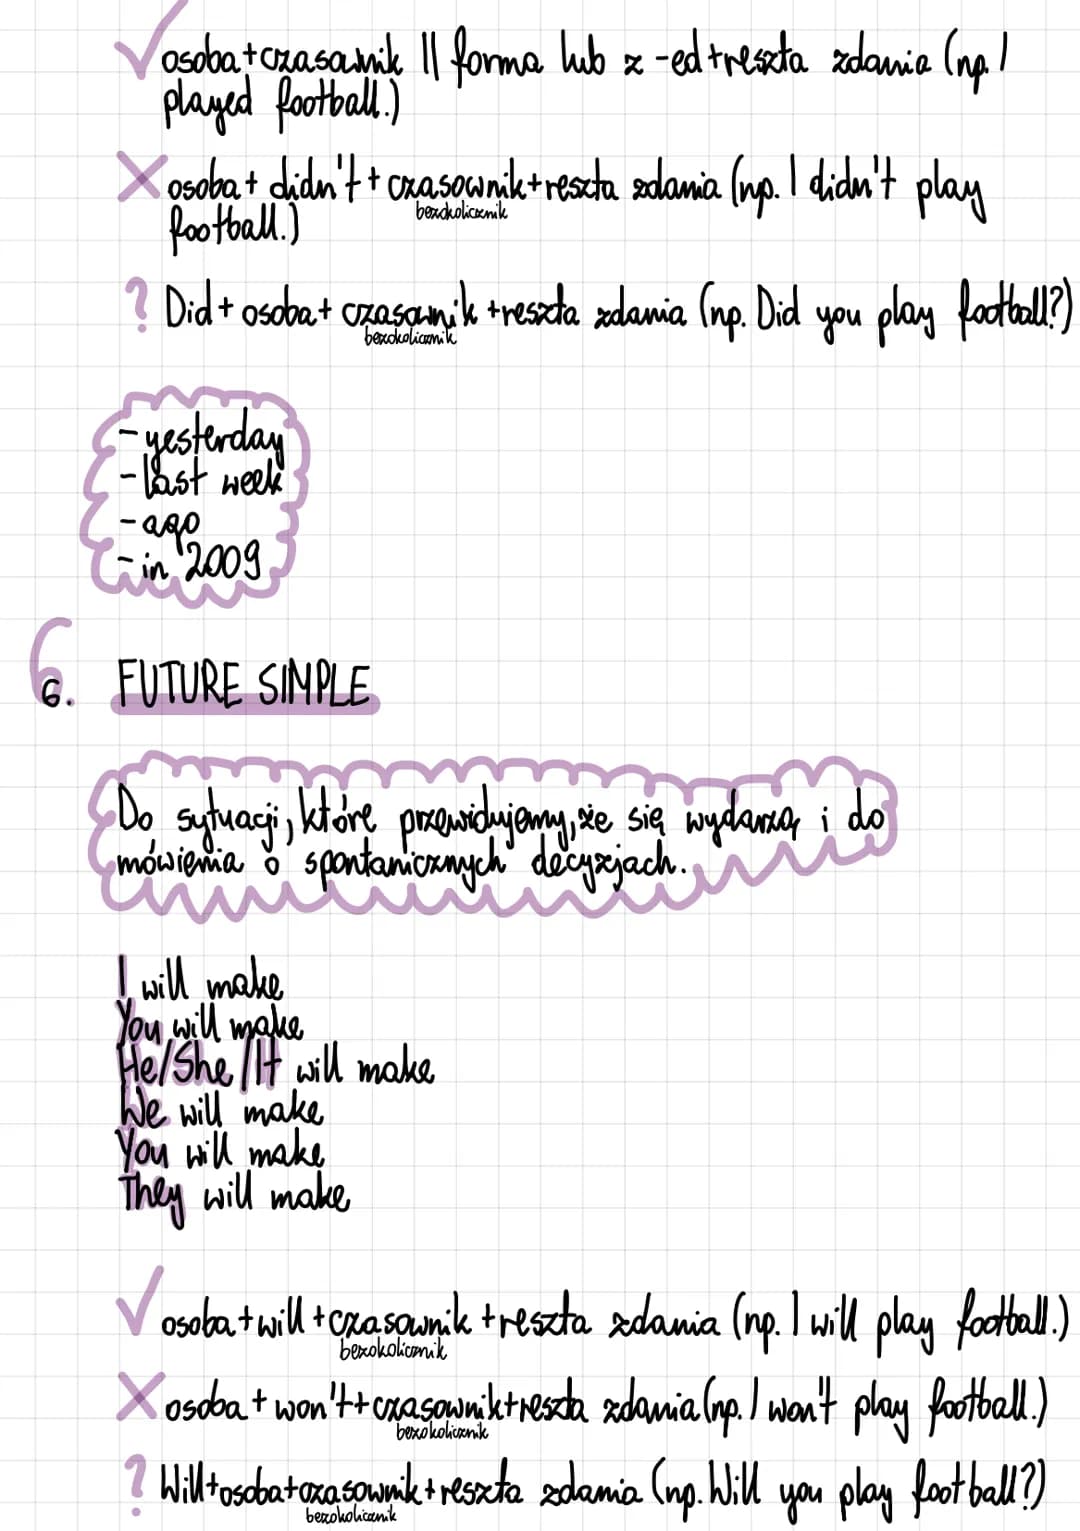 ✓ osoba+czasownik II forma lub z -ed+reszta zdania (np. I
played football.)
X osoba+ didn't+ czasownik+reszta zdania (np. I didn't play
bezokolicznik
football.)
? Did+ osoba+ czasownik +reszta zdania (np. Did you play football?)
bezokolicznik
- yesterday
- last week
- ago
- in 2009
6. FUTURE SIMPLE
Do sytuacji, które przewidujemy, że się wydarzą i do
mówienia o spontanicznych decyzjach.
I will make
You will make
He/She/It will make
We will make
You will make
They will make
✓ osoba+will+czasownik+reszta zdania (np. I will play football.)
bezokolicznik
X osoba+ won't+czasownik+reszta zdania (np. I won't play football.)
bezokolicznik
? Will+osoba+czasownik+reszta zdania (np. Will you play football?)
bezokolicznik